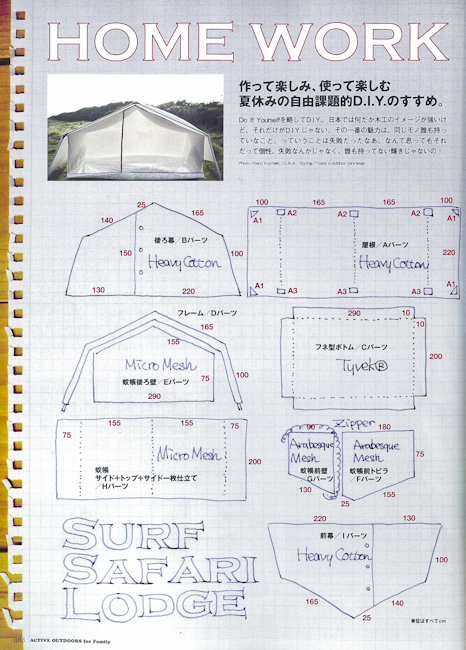 HOME WORK
作って楽しみ、使って楽しむ
夏休みの自由課題的D.I.Y.のすすめ。
Do It Yourselfを略してD.I.Y.。日本では何だか木工のイメージが強いけ
ど、それだけがD.I.Y.じゃない。その一番の魅力は、同じモノ誰も持っ
ていないこと。っていうことは失敗だったなあ、なんて思ってもそれ
だって個性。失敗なんかじゃなく、誰も持ってない輝きじゃないの!
140 25 165
150 100
後ろ幕/Bパーツ
Heavy Cotton
130 220
100 165 165 100
A1 A2 A2 A1
220
屋根/Aパーツ
Heavy Cotton
A1 A3 A3 A1
フレーム/Dパーツ
165
155
Micro Mesh
蚊帳後ろ壁/Eパーツ
75 100
290
290 10
10
フネ型ボトム/Cパーツ
Tyvek®
200
75 155 155 75
Micro Mesh
200
蚊帳
サイド+トップ+サイド一枚仕立て
/Hパーツ
Zipper
90 180
75 Arabesque Mesh
蚊帳前壁
/Gパーツ
130
25
Arabesque Mesh 75
蚊帳前トビラ
/Fパーツ
155
SURF
SAFARI
LODGE
220 130
前幕/Iパーツ
Heavy Cotton
100
165 25 140
単位はすべてcm
ACTIVE OUTDOORS for Family